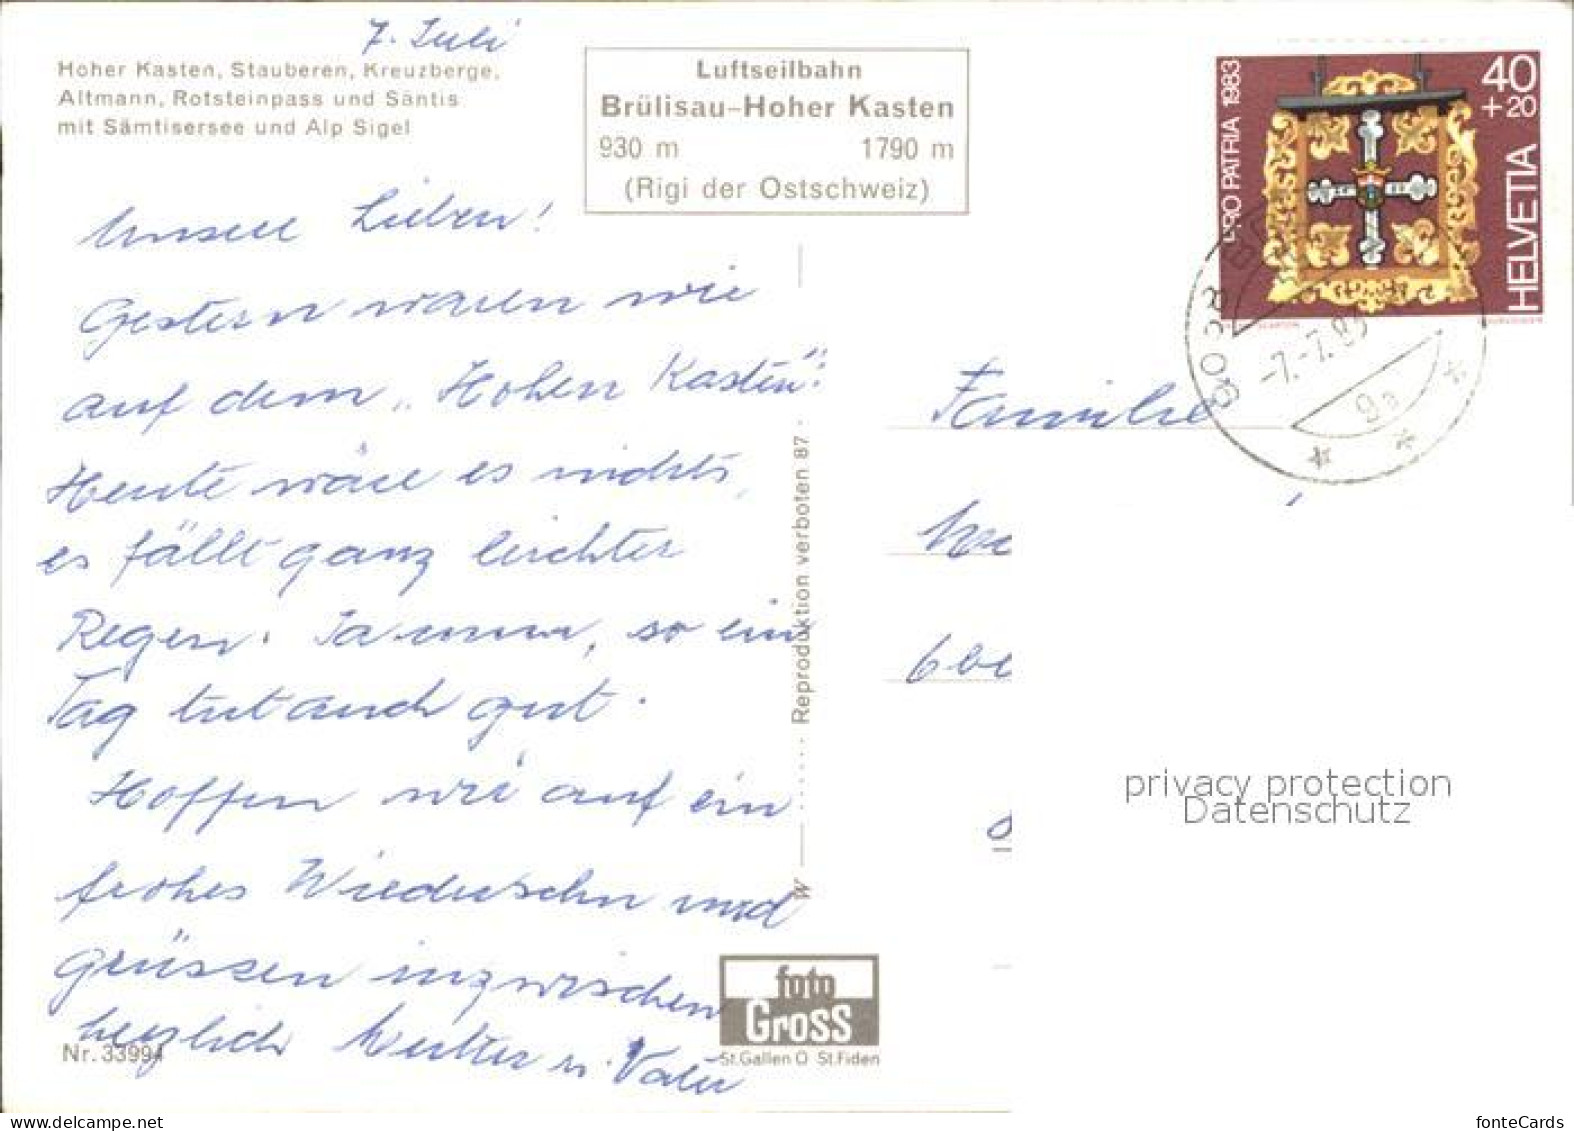 7. Juli
Hoher Kasten, Stauberen, Kreuzberge,
Altmann, Rotsteinpass und Säntis
mit Sämtisersee und Alp Sigel
Luftseilbahn
Brülisau–Hoher Kasten
930 m 1790 m
(Rigi der Ostschweiz)
PRO PATRIA 1983
40
+20
HELVETIA
9058 BR
-7.-7.83
9a
Unsere Lieben!
Gestern waren wir
auf dem „Hohen Kasten“.
Heute wäre es nichts,
es fällt ganz leichter
Regen. Ja nun, so ein
Tag tut auch gut.
Hoffen wir auf ein
frohes Wiedersehn und
grüssen inzwischen
herzlich Mutter u. Vater
Familie
W ...... Reproduktion verboten 87
foto
Gross
St.Gallen O St.Fiden
Nr. 33994
privacy protection
Datenschutz
fonteCards